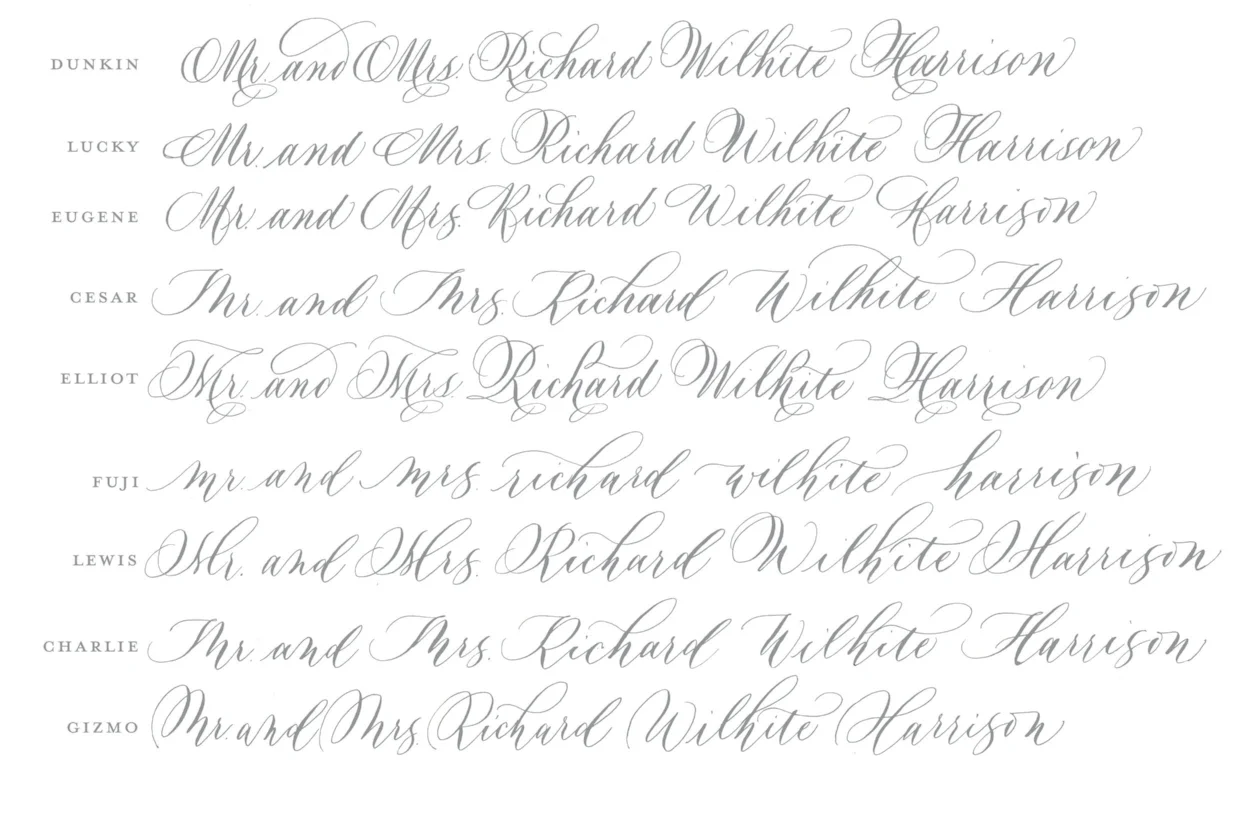 DUNKIN Mr. and Mrs. Richard Wilhite Harrison
LUCKY Mr. and Mrs. Richard Wilhite Harrison
EUGENE Mr. and Mrs. Richard Wilhite Harrison
CESAR Mr. and Mrs. Richard Wilhite Harrison
ELLIOT Mr. and Mrs. Richard Wilhite Harrison
FUJI mr. and mrs. richard wilhite harrison
LEWIS Mr. and Mrs. Richard Wilhite Harrison
CHARLIE Mr. and Mrs. Richard Wilhite Harrison
GIZMO Mr. and Mrs. Richard Wilhite Harrison